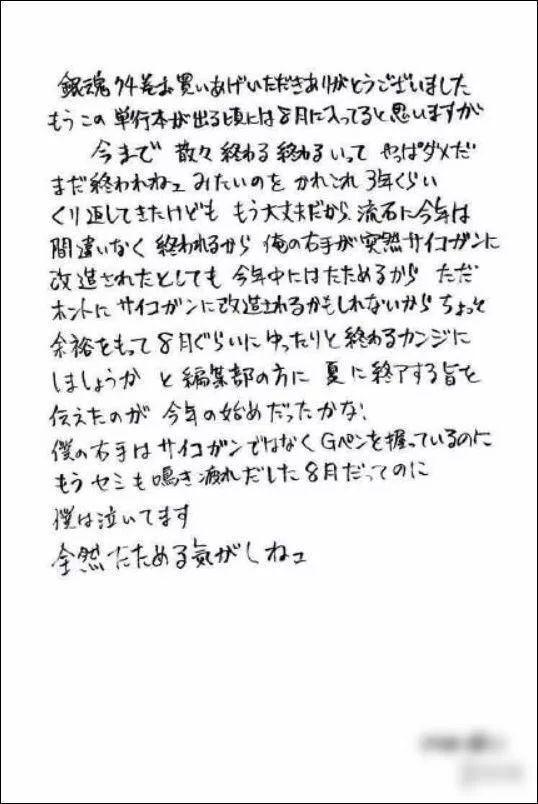 銀魂74巻お買いあげいただきありがとうございました
もうこの単行本が出る頃には8月に入ってると思いますが
今まで 散々終わる終わるいって やっぱダメだ
まだ終われねェ みたいのを かれこれ3年くらい
くり返してきたけども もう大丈夫だから 流石に今年は
間違いなく 終われるから 俺の右手が突然サイコガンに
改造されたとしても 今年中にはたためるから ただ
ホントに サイコガンに改造されるかもしれないから ちょっと
余裕をもって 8月ぐらいに ゆったりと終わるカンジに
しましょうか と 編集部の方に 夏に終了する旨を
伝えたのが 今年の始めだったかな
僕の右手はサイコガンではなく Gペンを握っているのに
もう セミも鳴き疲れだした 8月だってのに
僕は泣いてます
全然たためる気がしねェ